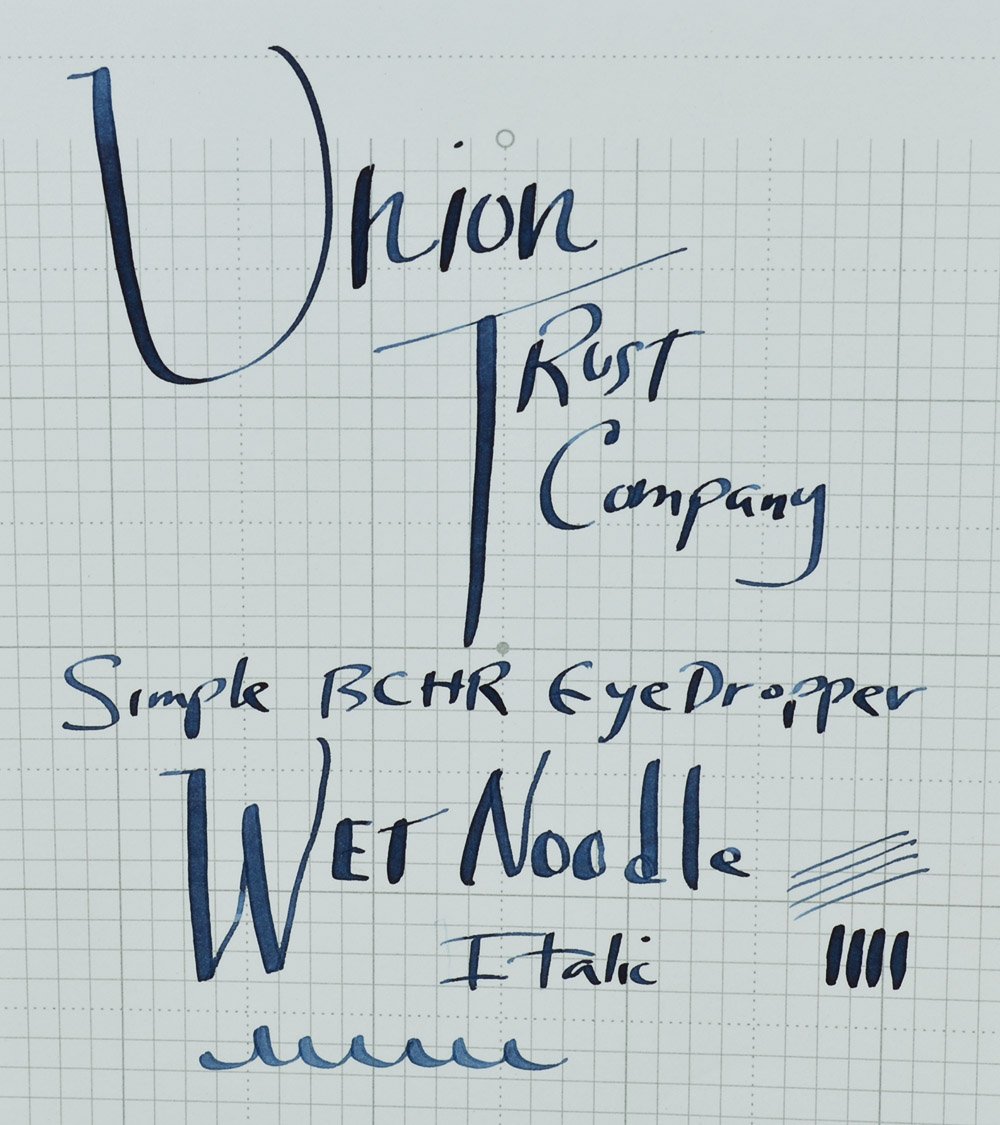 Union
Trust
Company
Simple BCHR EyeDropper
Wet Noodle
Italic